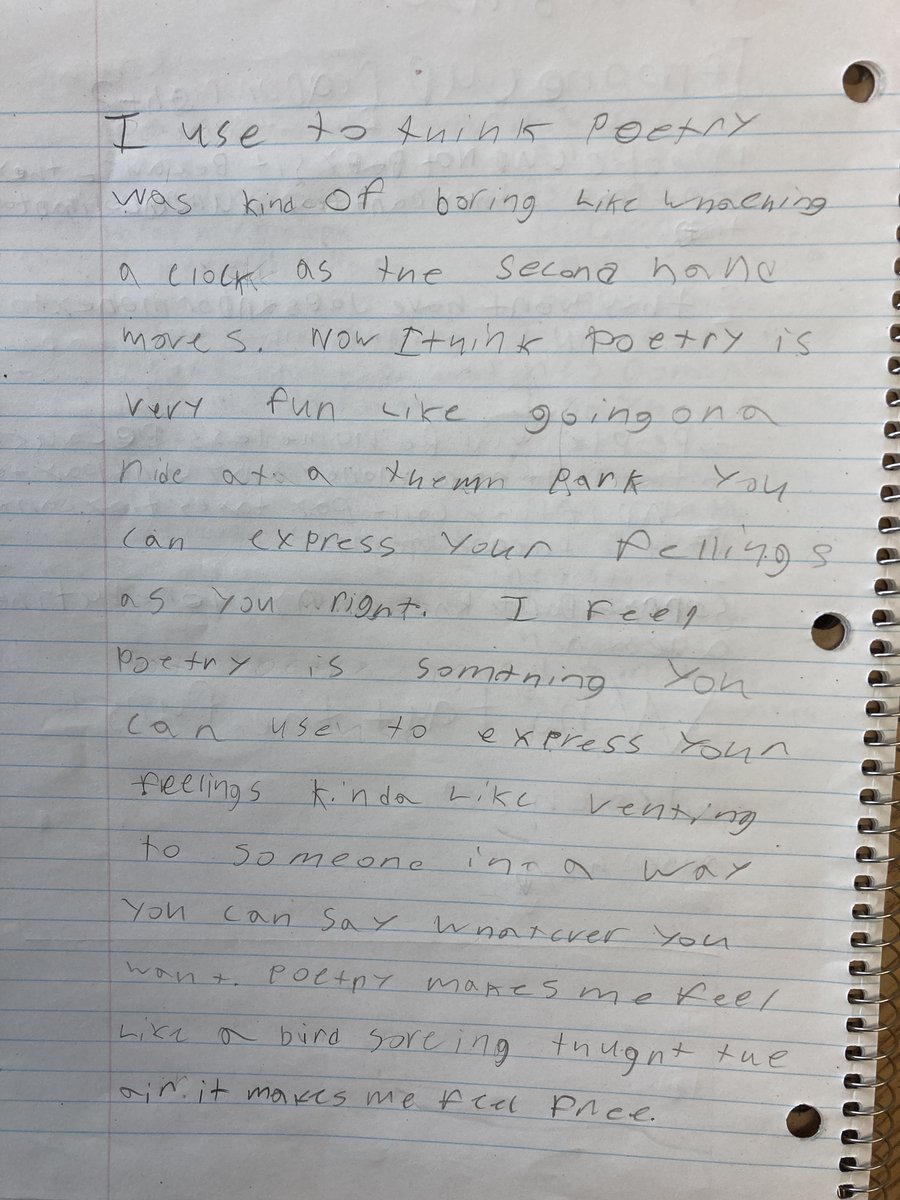 I use to think Poetry
was kind of boring like whaching
a clock as the second hand
moves. Now I think Poetry is
very fun like going on a
ride at a themn park You
can express your fellings
as you right. I feel
poetry is somthing you
can use to express your
feelings kinda like venting
to someone in a way
you can say whatever you
want. Poetry makes me feel
like a bird soreing thught the
air. it makes me feel free.